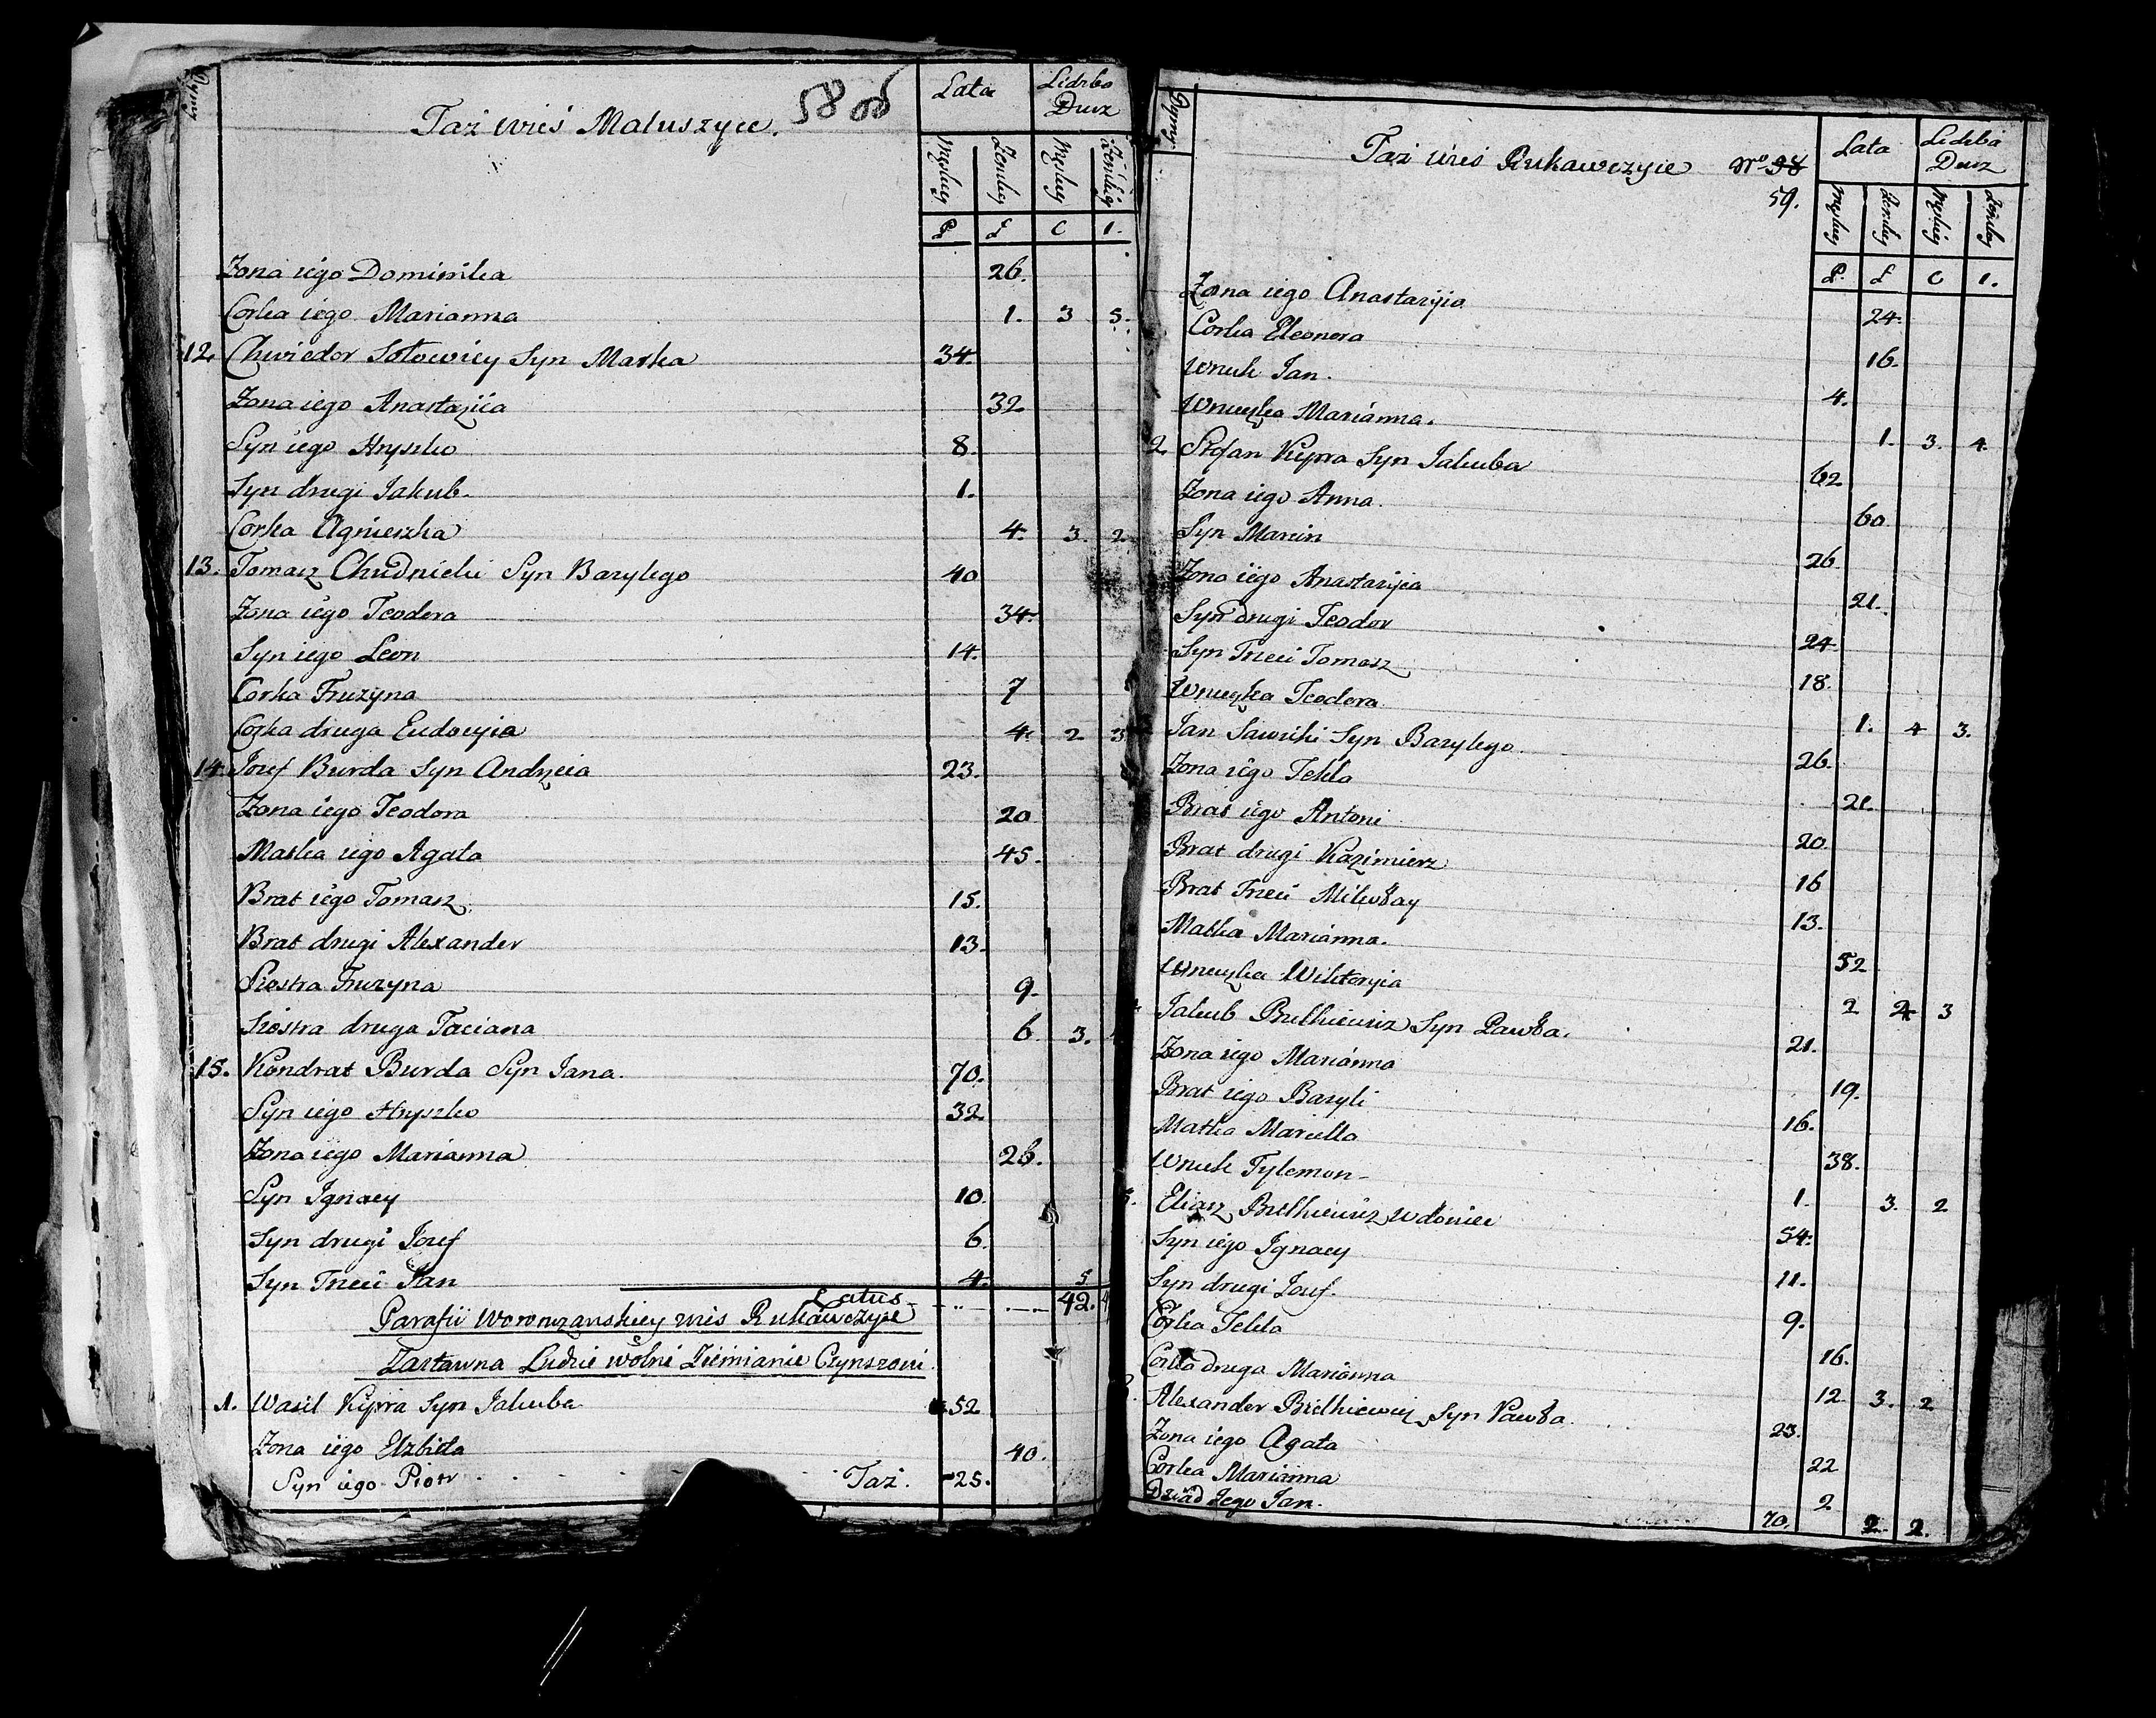 Dymy
Taż wieś Maluszyce. 58 об
Lata Liczba Dusz
Męskiey Żenskiey Męskiey Żenskiey
P. L C 1.
Zona iego Dominika 26.
Corka iego Marianna 1. 3 5.
12. Chwiedor Sołowiey Syn Marka 34.
Zona iego Anastazija 32
Syn iego Hryszko 8.
Syn drugi Jakub. 1.
Corka Agnieszka 4. 3. 2.
13. Tomasz Chudnicki Syn Bazylego 40
Zona iego Teodora 34.
Syn iego Leon 14.
Corka Fruzyna 7
Corka druga Eudocyia 4. 2 3
14. Jozef Burda Syn Andrzeia 23.
Zona iego Teodora 20
Matka iego Agata 45.
Brat iego Tomasz 15.
Brat drugi Alexander 13.
Siostra Fruzyna 9.
Siostra druga Taciana 6. 3.
15. Kondrat Burda Syn Jana. 70.
Syn iego Hryszko 32
Zona iego Marianna 26.
Syn Ignacy 10.
Syn drugi Jozef 6.
Syn Trzeci Jan 4. 5
Latus 42.
Parafii Woronczanskiey wieś Rukawczyce
Zastawna Ludzie wolni Ziemianie Czynszowi
1. Wasil Kipra Syn Jakuba 52
Zona iego Elzbieta 40.
Syn iego Piotr Taż. 25.
Dymy
Taż wieś Rukawczyce No 98
59.
Lata Liczba Dusz
Męskiey Żenskiey Męskiey Żenskiey
P. L C 1.
Zona iego Anastazija 24.
Corka Eleonora 16.
Wnuk Jan. 4.
Wnuczka Marianna. 1. 3. 4.
2. Stefan Kipra Syn Jakuba 62
Zona iego Anna. 60
Syn Marcin 26
Zona iego Anastazija 21.
Syn drugi Teodor 24
Syn Trzeci Tomasz 18.
Wnuczka Teodora 1. 4 3.
Jan Sawicki Syn Bazylego. 26.
Zona iego Tekla 21.
Brat iego Antoni 20.
Brat drugi Kazimierz 16
Brat Trzeci Mikołay 13.
Matka Marianna. 52
Wnuczka Wiktoryia 2 4 3
Jakub Bułhiewicz Syn Pawła. 21.
Zona iego Marianna 19.
Brat iego Bazyli 16.
Matka Marcella 38.
Wnuk Fylemon 1. 3. 2
5. Eliasz Bułhiewicz wdowiec 54.
Syn iego Ignacy 11.
Syn drugi Jozef. 9.
Corka Tekla 16.
Corka druga Marianna 12 3. 2
Alexander Bułhiewicz Syn Pawła. 23.
Zona iego Agata 22
Corka Marianna 2
Dziad Jego Jan. 70. 2. 2.